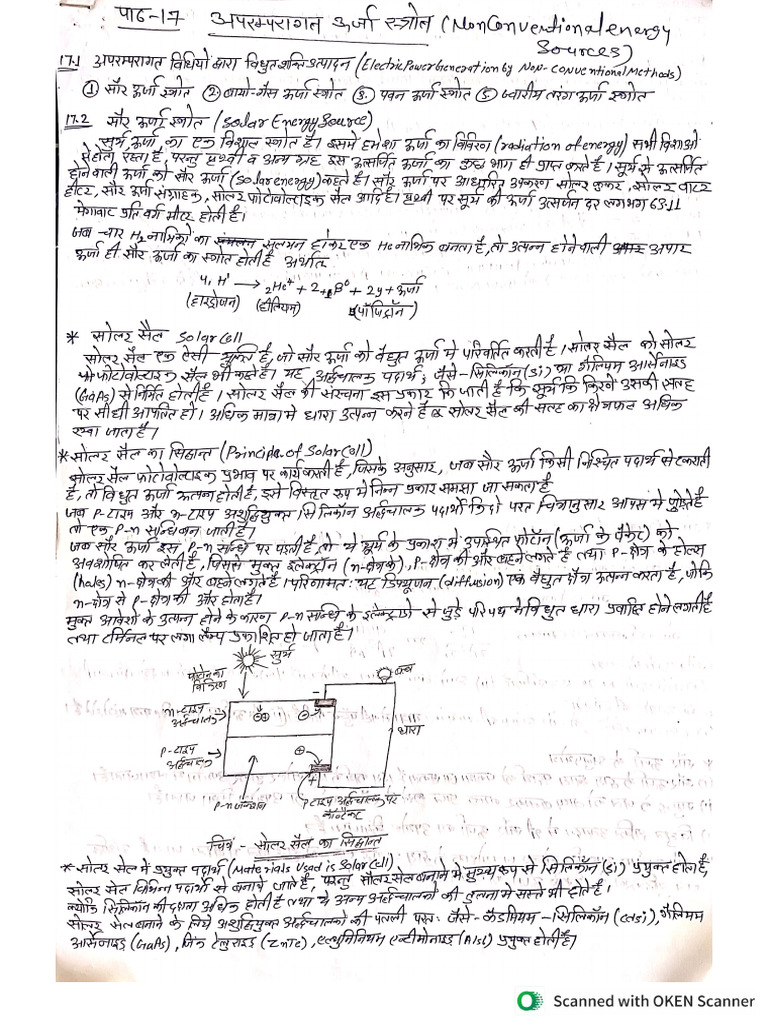 पाठ-17 अपरम्परागत ऊर्जा स्त्रोत (NonConventional energy
Sources)
17.1 अपरम्परागत विधियो द्वारा विधुत शक्ति उत्पादन (Electric Power Generation by Non-Conventional Methods)
① सौर ऊर्जा स्त्रोत ② बायो-गैस ऊर्जा स्त्रोत ③ पवन ऊर्जा स्त्रोत ⑤ ज्वारीय तरंग ऊर्जा स्त्रोत
17.2 सौर ऊर्जा स्त्रोत (Solar Energy Source)
सूर्य ऊर्जा का एक विशाल स्त्रोत है। इसमे हमेशा ऊर्जा का विकिरण (radiation of energy) सभी दिशाओ
मे होता रहता है, परन्तु पृथ्वी व अन्य ग्रह इस उत्सर्जित ऊर्जा का कुछ भाग ही प्राप्त करते है। सूर्य से उत्सर्जित
होने वाली ऊर्जा को सौर ऊर्जा (Solar energy) कहते है। सौर ऊर्जा पर आधारित उपकरण सोलर कुकर, सोलर वाटर
हीटर, सौर ऊर्जा संग्राहक, सोलर फोटोवोल्टाइक सैल आदि है। पृथ्वी पर सूर्य की ऊर्जा उत्सर्जन दर लगभग 63.11
मेगावाट प्रति वर्ग मीटर होती है।
जब चार H₂ नाभिको का संलयन होकर एक He नाभिक बनता है, तो उत्पन्न होने वाली अपार
ऊर्जा ही सौर ऊर्जा का स्त्रोत होती है अर्थात
4₁H¹ → ₂He⁴ + 2₊₁β⁰ + 2γ + ऊर्जा
(हाइड्रोजन) (हीलियम) (पॉजिट्रॉन)
* सोलर सैल Solar Cell
सोलर सैल एक ऐसी युक्ति है, जो सौर ऊर्जा को वैधुत ऊर्जा मे परिवर्तित करती है। सोलर सैल को सोलर
फोटोवोल्टाइक सैल भी कहते है। यह अर्द्धचालक पदार्थ; जैसे-सिलिकॉन (Si) या गैलियम आर्सेनाइड
(GaAs) से निर्मित होती है। सोलर सैल की संरचना इस प्रकार कि जाती है कि सूर्य कि किरणे उसकी सतह
पर सीधी आपतित हो। अधिक मात्रा मे धारा उत्पन्न करने हेतु सोलर सैल की सतह का क्षेत्रफल अधिक
रखा जाता है।
* सोलर सैल का सिद्धान्त (Principle of Solar Cell)
सोलर सैल फोटोवोल्टाइक प्रभाव पर कार्य करती है, जिसके अनुसार, जब सौर ऊर्जा किसी निश्चित पदार्थ से टकराती
है, तो विधुत ऊर्जा उत्पन्न होती है, इसे विस्तृत रूप मे निम्न प्रकार समझा जा सकता है
जब P-टाइप और n-टाइप अशुद्धियुक्त सिलिकॉन अर्द्धचालक पदार्थो कि दो परत चित्रानुसार आपस मे जोड़ते है
तो एक P-n सन्धि बन जाती है।
जब सौर ऊर्जा इस P-n सन्धि पर पड़ती है, तो ये सूर्य के प्रकाश मे उपस्थित फोटॉन (ऊर्जा के पैकेट) को
अवशोषित कर लेती है, जिससे मुक्त इलेक्ट्रॉन (n-क्षेत्र के), P-क्षेत्र की और बहने लगते है तथा P-क्षेत्र के होल्स
(holes) n-क्षेत्र की और बहने लगते है। परिणामतः यह डिफ्यूजन (diffusion) एक वैधुत क्षेत्र उत्पन्न करता है, जोकि
n-क्षेत्र से P-क्षेत्र की और होता है।
मुक्त आवेशो के उत्पन्न होने के कारण P-n सन्धि के इलेक्ट्रोडो से जुड़े परिपथ मे विधुत धारा प्रवाहित होने लगती है
तथा टर्मिनल पर लगा लैम्प प्रकाशित हो जाता है।
सूर्य
फोटोन का
विकिरण
बल्ब
n-टाइप
अर्द्धचालक
धारा
P-टाइप
अर्द्धचालक
P-n जंक्शन
P टाइप अर्द्धचालक पर
कॉन्टैक्ट
चित्र - सोलर सैल का सिद्धान्त
* सोलर सेल मे प्रयुक्त पदार्थ (Materials Used is Solar Cell)
सोलर सेल विभिन्न पदार्थो से बनाये जाते है, परन्तु सोलर सेल बनाने मे मुख्य रूप से सिलिकॉन (Si) प्रयुक्त होता है,
क्योकि सिलिकॉन की दक्षता अधिक होती है तथा ये अन्य अर्द्धचालको की तुलना मे सस्ते भी होते है।
सोलर सैल बनाने के लिये अशुद्धियुक्त अर्द्धचालको की पतली परत; जैसे- कैडमियम-सिलिकॉन (CdSi), गैलियम
आर्सेनाइड (GaAs), जिंक टेलुराइड (ZnTe), एल्युमिनियम एन्टीमोनाइड (AlSb) प्रयुक्त होती है।
Scanned with OKEN Scanner